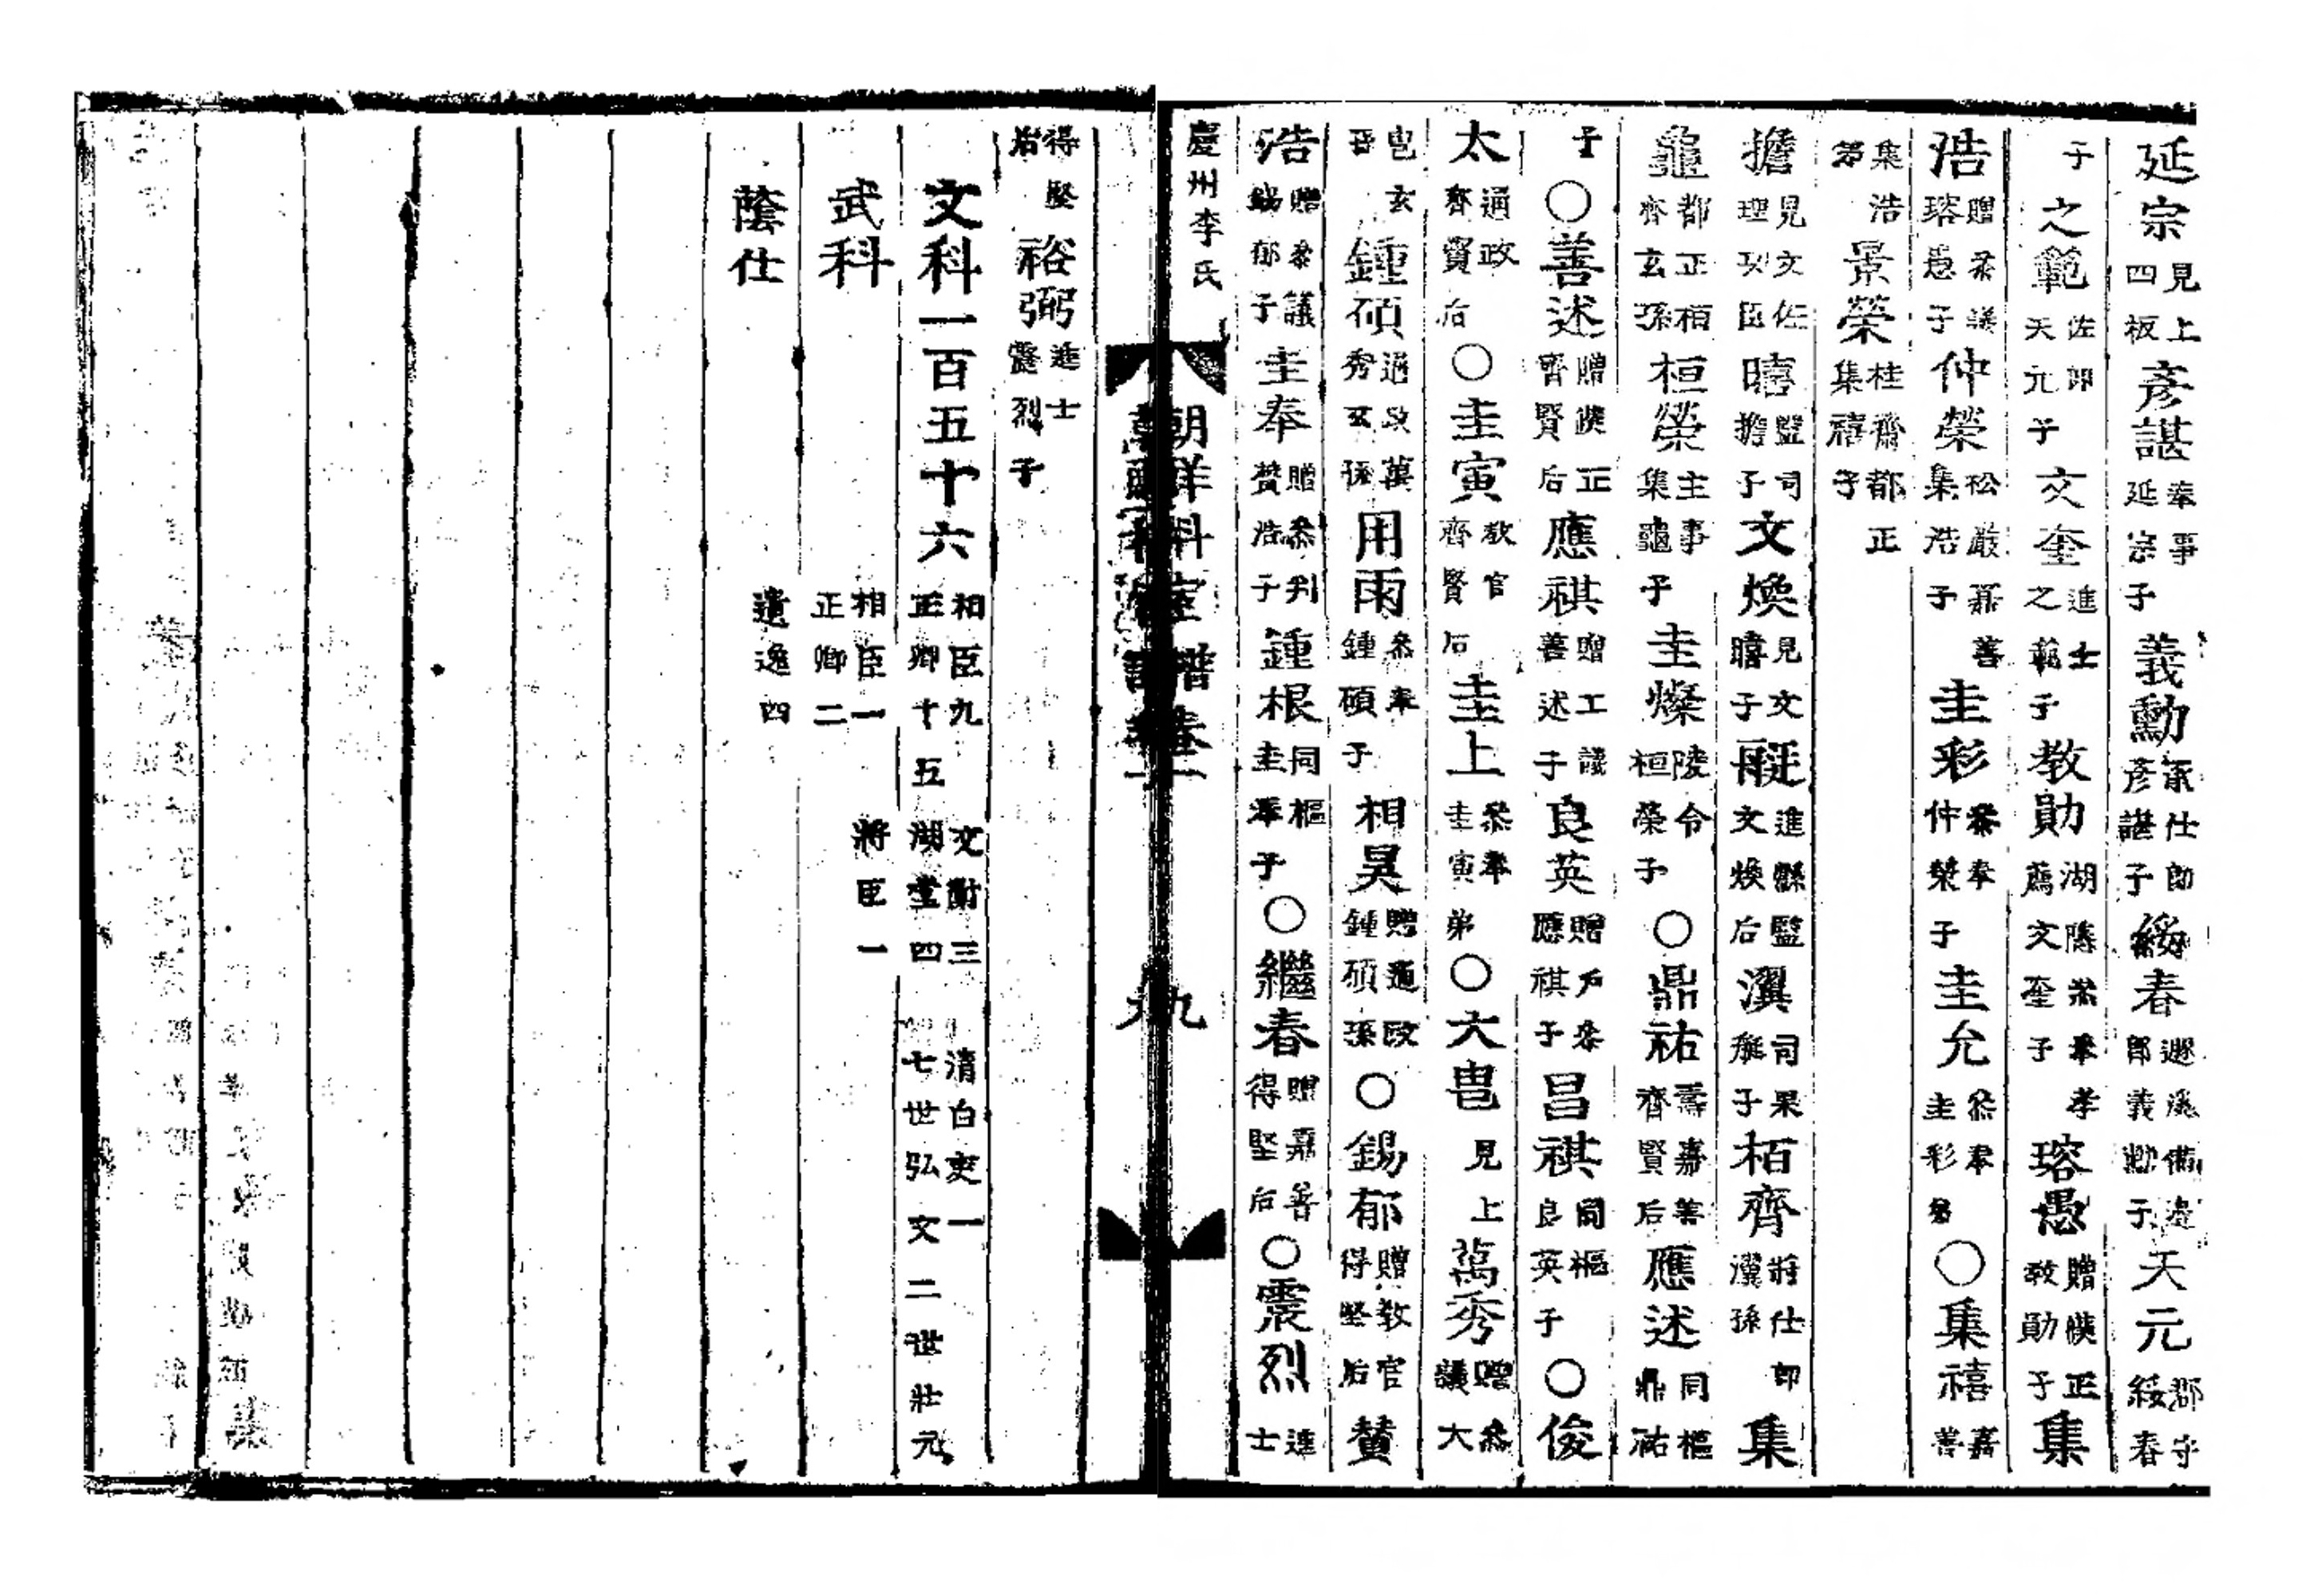 延宗見上四板彥諶奉事延宗子義勳承仕郎彥諶子綏春邊備郎義勳子天元郡守綏春
子之範佐郎天元子文奎進士之範子教勛湖薦參奉孝文奎子瑢愚贈僕正教勛子集
浩贈參議瑢愚子仲榮松嚴嘉善集浩子圭彩參奉仲榮子圭允參奉圭彩弟○集禧嘉善
集浩弟景榮桂齋都正集禧子
擔見文佐理功臣曔監司擔子文煥見文曔子艇進縣監文煥后瀷司果艇子栢齊將仕郎瀷孫集
龜都正栢齊玄孫桓榮主事集龜子圭燦陵令桓榮子○鼎祐壽嘉善齊賢后應述同樞鼎祐
子○善述贈僕正齊賢后應祺贈工議善述子良英贈戶參應祺子昌祺同樞良英子○俊
太通政齊賢后○圭寅教官齊賢后圭上參奉圭寅弟○大㫖見上萬秀贈參議大
㫖玄孫鍾碩通政萬秀玄孫用雨參奉鍾碩子相昊贈通政鍾碩孫○錫郁贈教官得堅后贊
浩贈參議錫郁子圭奉贈參判贊浩子鍾根同樞圭奉子○繼春贈嘉善得堅后○震烈進士
慶州李氏
朝鮮科宦譜卷一
九
得堅后裕弼進士震烈子
文科一百五十六 相臣九 正卿十五 文衡三 湖堂四 清白吏一 七世弘文二世壯元
武科 相臣一 正卿二 將臣一
蔭仕 遺逸四